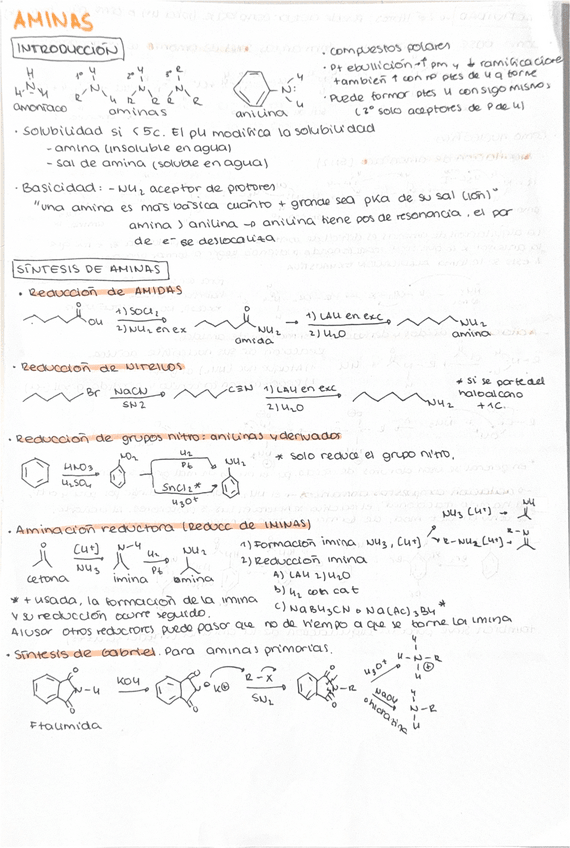 AMINAS
INTRODUCCIÓN
· compuestos polares
· Pt ebullición → ↑ pm y ↓ ramificaciones
también ↑ con nº ptes de H q forme
· Puede formar ptes H consigo mismos
(3º solo aceptores de P de H)
amoniaco
1º
2º
3º
aminas
anilina
· Solubilidad si <5c. El pH modifica la solubilidad
- amina (insoluble en agua)
- sal de amina (soluble en agua)
· Basicidad: -NH2 aceptor de protones
"una amina es más básica cuanto + grande sea pKa de su sal (ión)"
amina > anilina → anilina tiene pos de resonancia, el par
de e- se deslocaliza
SÍNTESIS DE AMINAS
· Reducción de AMIDAS
O
OH
1) SOCl2
2) NH3 en ex
O
NH2
amida
1) LAH en exc
2) H2O
NH2
amina
· Reducción de NITRILOS
Br
NaCN
SN2
C≡N
1) LAH en exc
2) H2O
NH2
* Si se parte del
haloalcano
+1C.
· Reducción de grupos nitro: anilinas y derivados
HNO3
H2SO4
NO2
H2
Pt
SnCl2*
H3O+
NH2
* solo reduce el grupo nitro.
· Aminación reductora (Reducc de IMINAS)
O
cetona
[H+]
NH3
N-H
imina
H2
Pt
NH2
amina
1) Formación imina NH3, [H+]
NH3 [H+] →
R-NH2 [H+] →
2) Reducción imina
A) LAH 2) H2O
b) H2 con cat
c) NaBH3CN o Na(Ac)3BH*
* + usada, la formación de la imina
y su reducción ocurre seguido.
Al usar otros reductores puede pasar que no de tiempo a que se forme la imina
· Síntesis de Gabriel. Para aminas primarias.
N-H
Ftalimida
KOH
K+
R-X
SN2
N-R
H3O+
NaOH
o hidratina
H-N-R
H
N-R
H